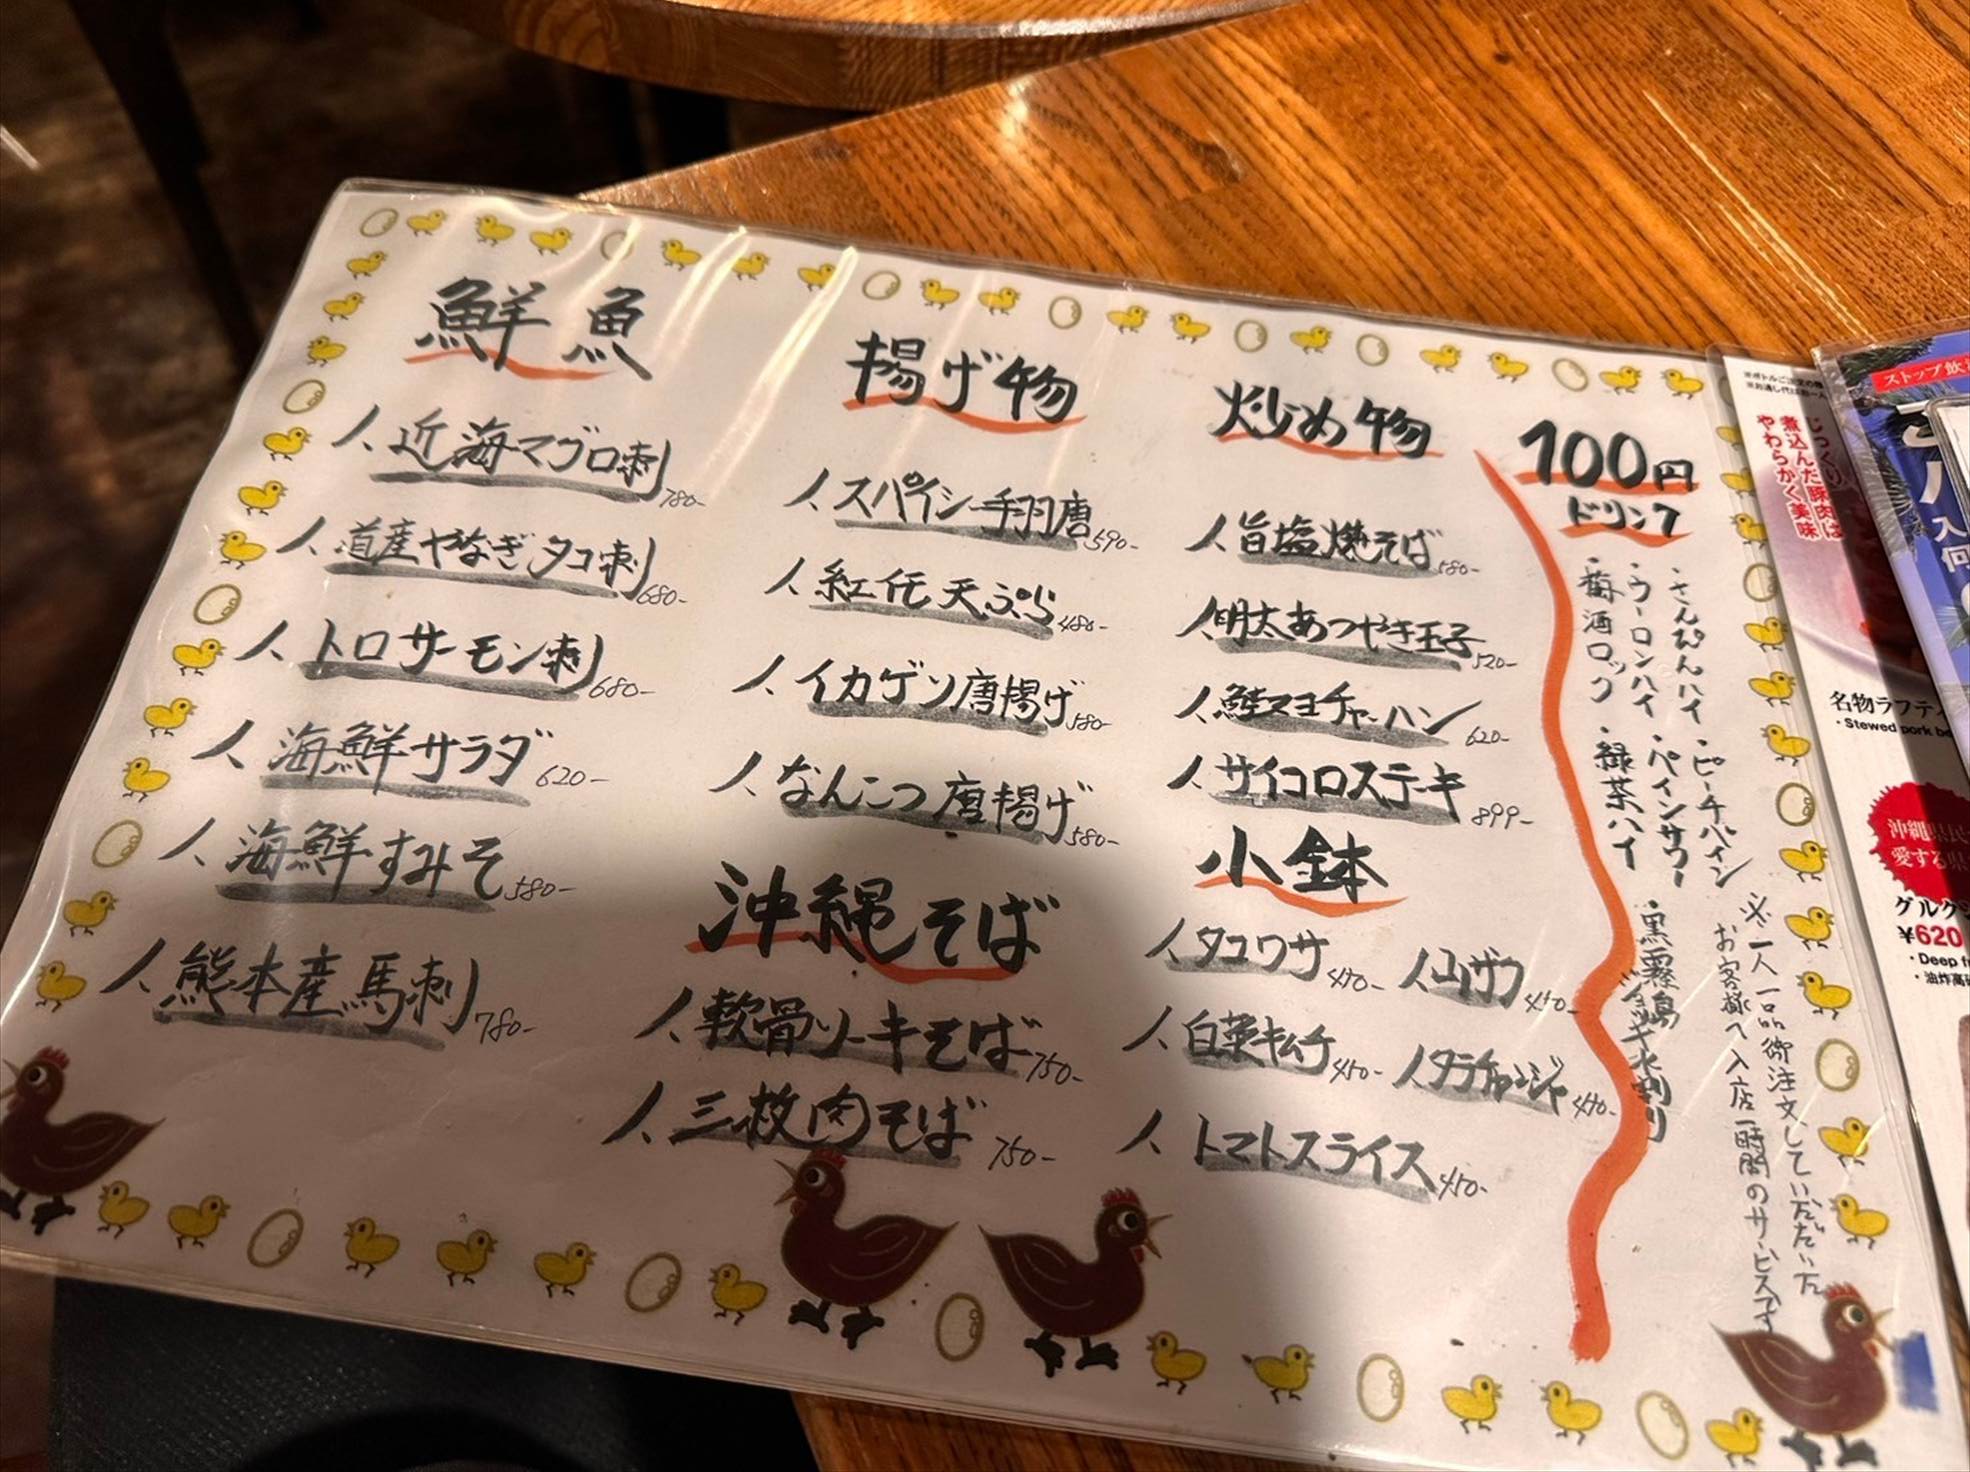 鮮魚
近海マグロ刺 780-
道産やなぎタコ刺 680-
トロサーモン刺 680-
海鮮サラダ 620-
海鮮すみそ 580-
熊本産馬刺 780-
揚げ物
スパイシー手羽唐 590-
紅伝天ぷら 480-
イカゲソ唐揚げ 580-
なんこつ唐揚げ 580-
沖縄そば
軟骨ソーキそば 750-
三枚肉そば 750-
炒め物
旨塩焼そば 580-
明太あつやき玉子 520-
鮭マヨチャーハン 620-
サイコロステーキ 899-
小鉢
タコワサ 470-
山ザワ 450-
白菜キムチ 450-
タラチャンジャ 470-
トマトスライス 450-
100円
ドリンク
・さんぴんハイ
・ピーチパイン
・ウーロンハイ
・パインサワー
・梅酒ロック
・緑茶ハイ
・黒霧島ジョッキ水割り
※一人一品御注文していただいた
お客様へ入店一時間のサービスです
じっくり
煮込んだ豚肉は
やわらかく美味
名物ラフテ
・Stewed pork be
沖縄県民
愛する県
グルク
¥620
・Deep f
・油炸高
ストップ飲